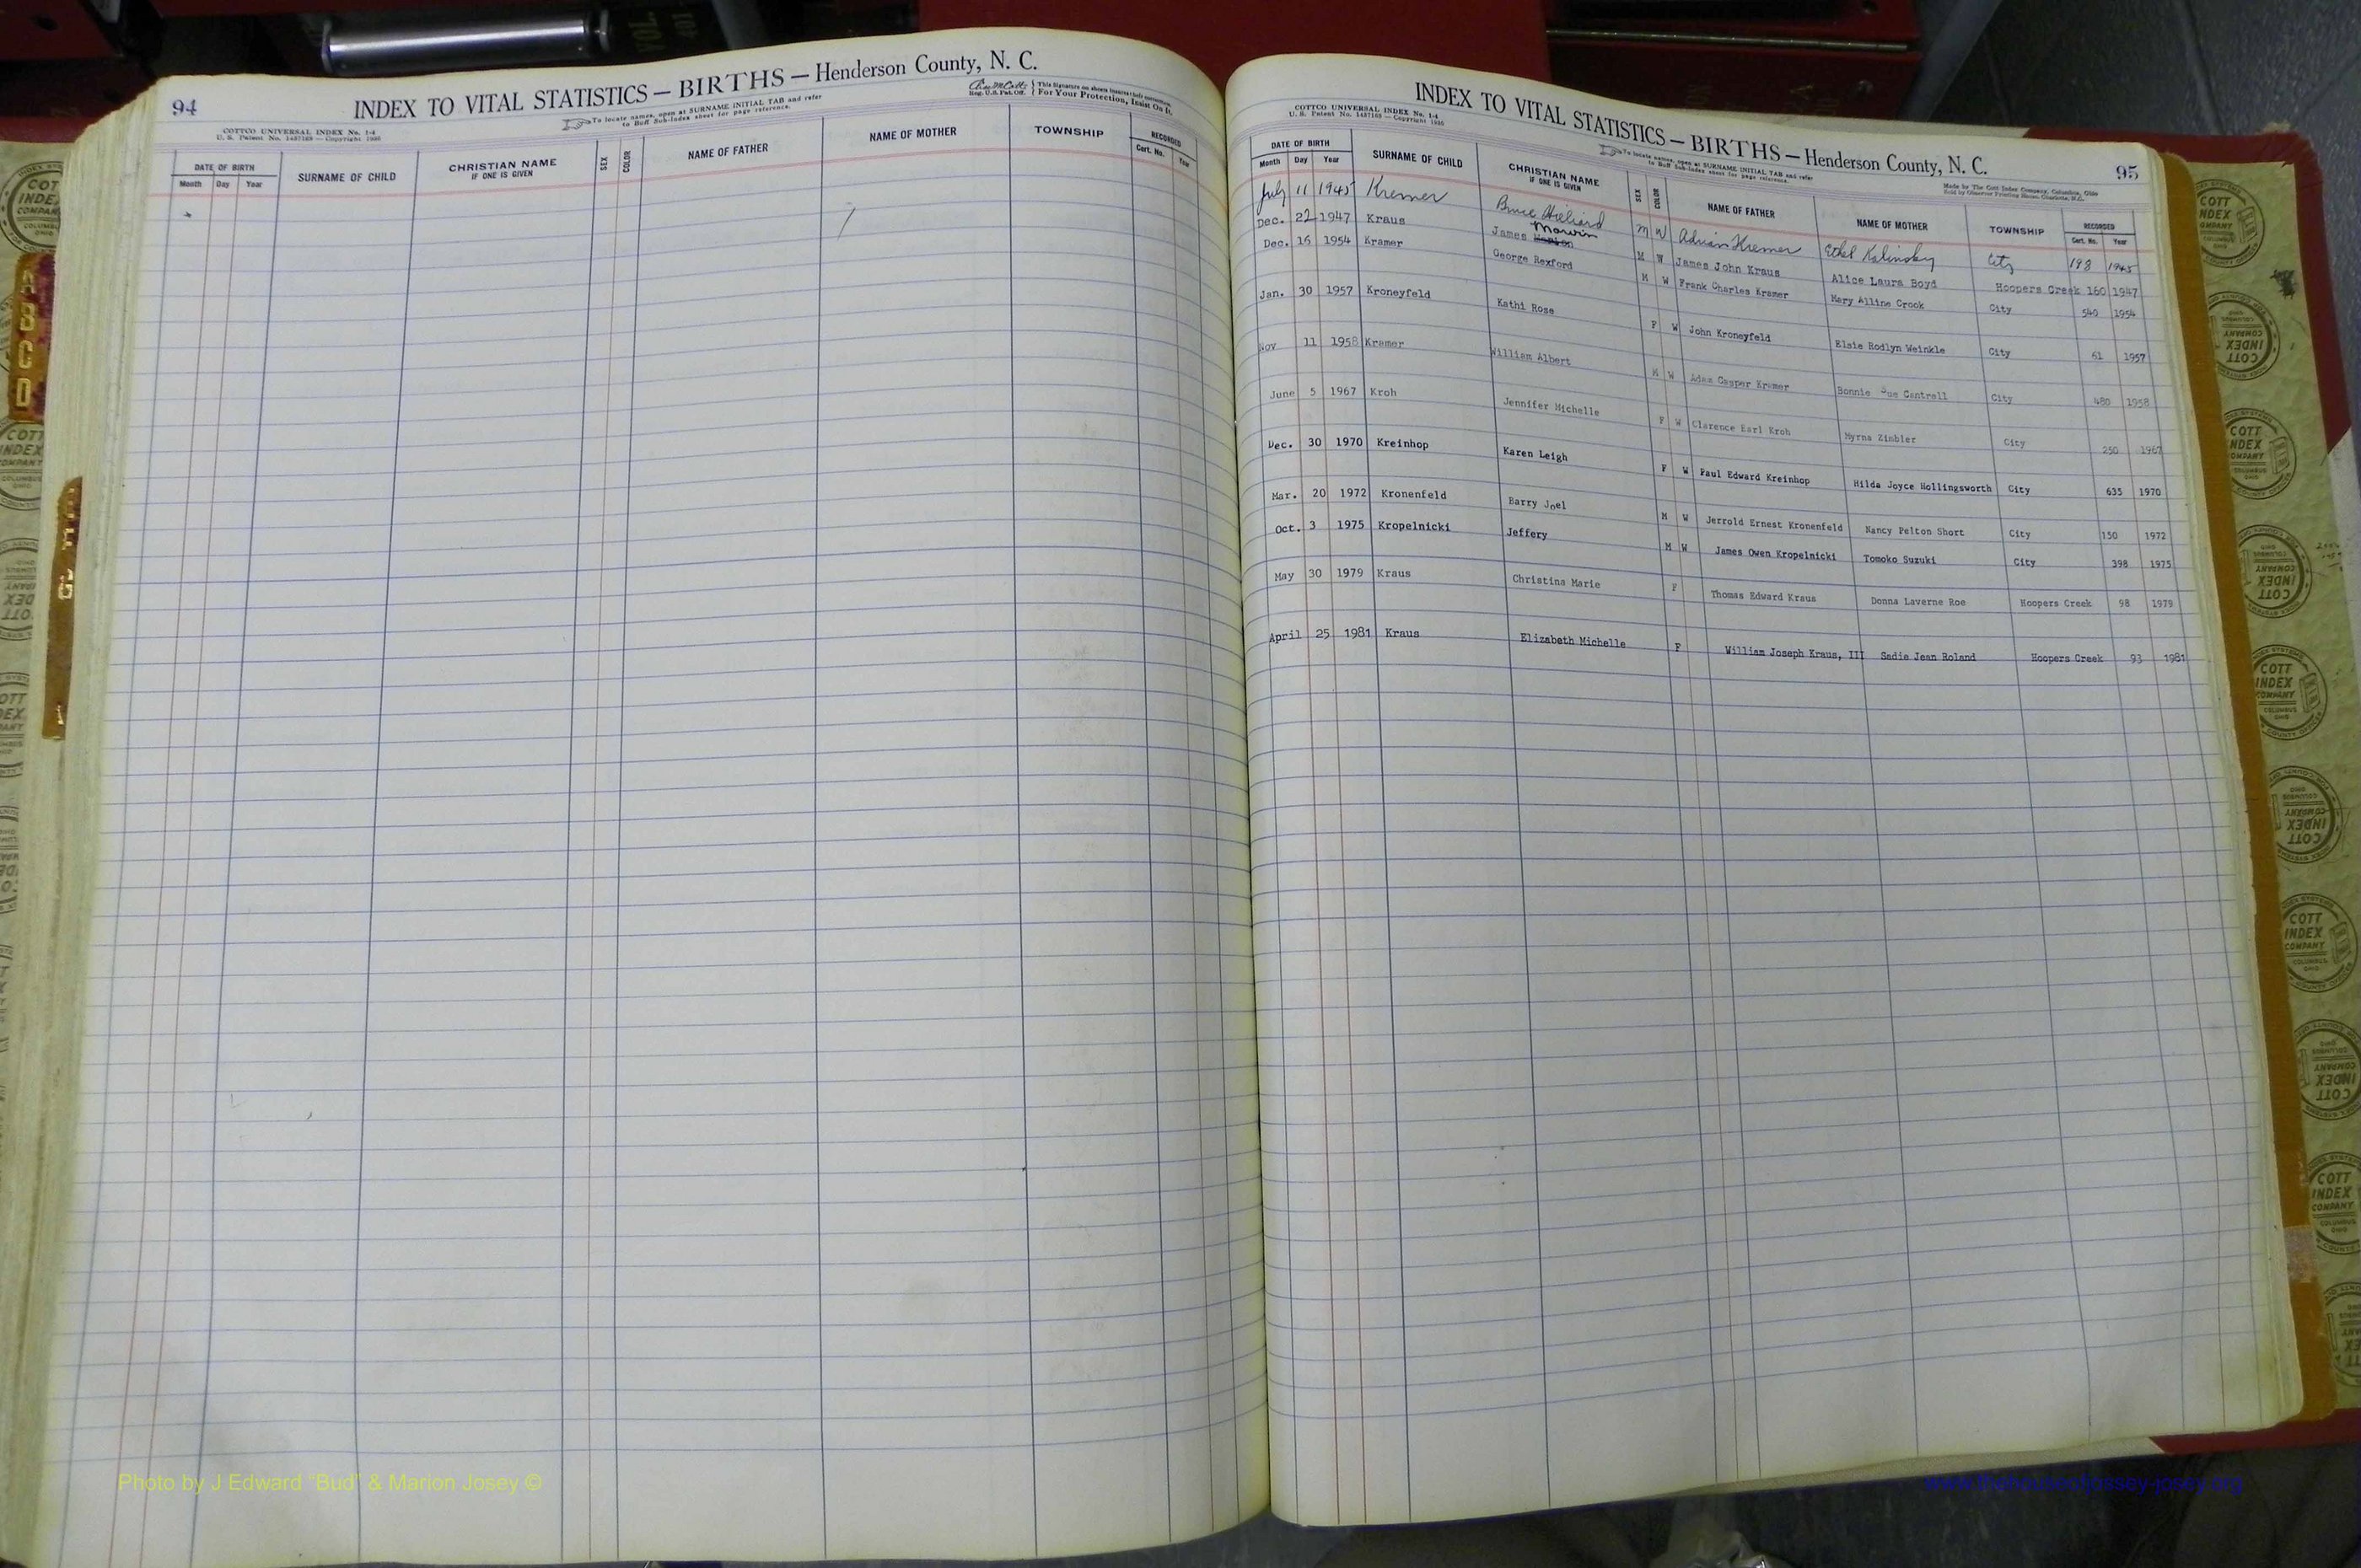 VOL.
401
94
INDEX TO VITAL STATISTICS — BIRTHS — Henderson County, N. C.
COTTCO UNIVERSAL INDEX No. 1-4
U. S. Patent No. 1437169 — Copyright 1935
To locate names, open at SURNAME INITIAL TAB and refer
to Buff Sub-Index sheet for page reference.
Reg. U.S. Pat. Off.
For Your Protection, Insist On It.
DATE OF BIRTH
Month Day Year
SURNAME OF CHILD
CHRISTIAN NAME
IF ONE IS GIVEN
SEX
COLOR
NAME OF FATHER
NAME OF MOTHER
TOWNSHIP
RECORDED
Cert. No. Year
INDEX TO VITAL STATISTICS — BIRTHS — Henderson County, N. C.
95
COTTCO UNIVERSAL INDEX No. 1-4
U. S. Patent No. 1437169 — Copyright 1935
To locate names, open at SURNAME INITIAL TAB and refer
to Buff Sub-Index sheet for page reference.
Made by The Cott Index Company, Columbus, Ohio
Sold by Observer Printing House, Charlotte, N.C.
DATE OF BIRTH
Month Day Year
SURNAME OF CHILD
CHRISTIAN NAME
IF ONE IS GIVEN
SEX
COLOR
NAME OF FATHER
NAME OF MOTHER
TOWNSHIP
RECORDED
Cert. No. Year
July 11 1945 Kremer Bruce Hilliard M W Adrian Kremer Ethel Kalinsky City 198 1945
Dec. 22 1947 Kraus James Marvin M W James John Kraus Alice Laura Boyd Hoopers Creek 160 1947
Dec. 16 1954 Kramer George Rexford M W Frank Charles Kramer Mary Alline Crook City 540 1954
Jan. 30 1957 Kroneyfeld Kathi Rose F W John Kroneyfeld Elsie Rodlyn Weinkle City 61 1957
Nov 11 1958 Kramer William Albert M W Adam Casper Kramer Bonnie Sue Cantrell City 480 1958
June 5 1967 Kroh Jennifer Michelle F W Clarence Earl Kroh Myrna Zimbler City 250 1967
Dec. 30 1970 Kreinhop Karen Leigh F W Paul Edward Kreinhop Hilda Joyce Hollingsworth City 635 1970
Mar. 20 1972 Kronenfeld Barry Joel M W Jerrold Ernest Kronenfeld Nancy Pelton Short City 150 1972
Oct. 3 1975 Kropelnicki Jeffery M W James Owen Kropelnicki Tomoko Suzuki City 398 1975
May 30 1979 Kraus Christina Marie F Thomas Edward Kraus Donna Laverne Roe Hoopers Creek 98 1979
April 25 1981 Kraus Elizabeth Michelle F William Joseph Kraus, III Sadie Jean Roland Hoopers Creek 93 1981
A
B
C
D
COTT
INDEX
COMPANY
COLUMBUS
OHIO
Photo by J Edward “Bud” & Marion Josey ©
www.thehouseofjossey-josey.org